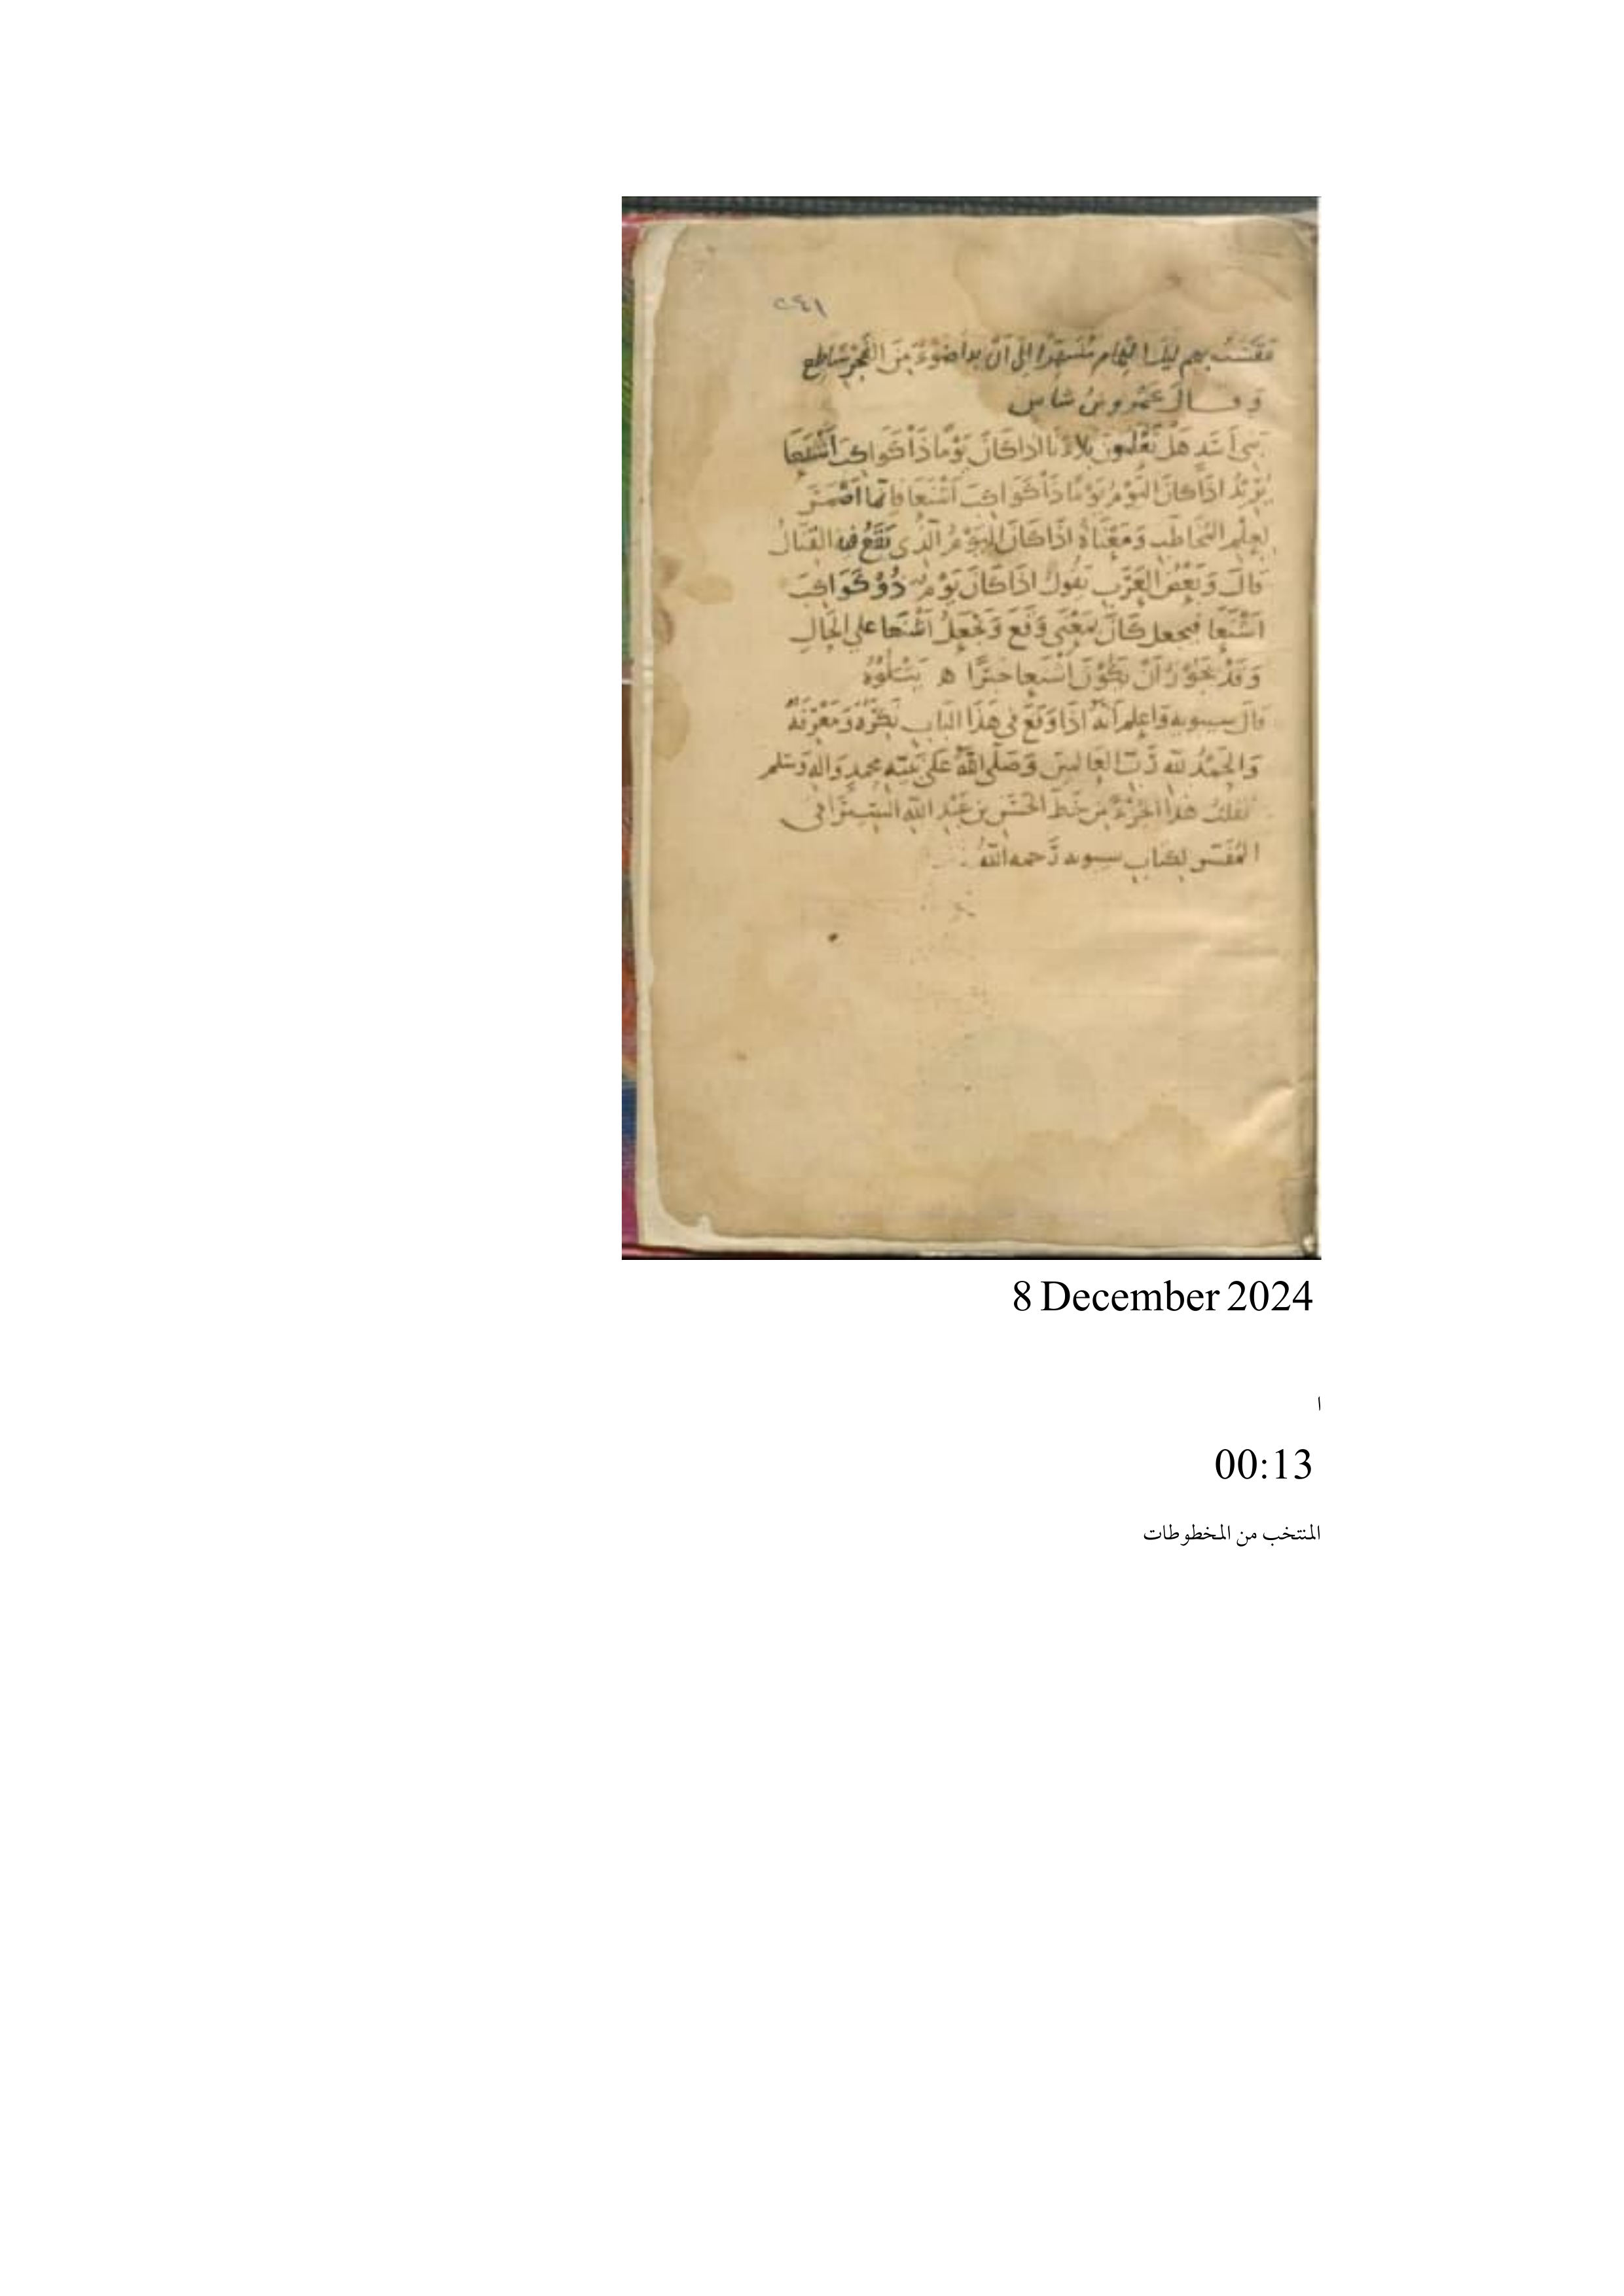 ٢٤١
فقست بهم ليل التمام مسهدا إلى أن بدا ضوء من الفجر ساطع
وقال عمرو بن شاس
بني أسد هل تعلمون بلاءنا اذا كان يوما ذا كواكب أشنعا
يريد اذا كان اليوم يوما ذا كواكب أشنعا فإنما اضمر
لعلم المخاطب ومعناه اذا كان اليوم الذي يقع فيه القتال
قال وبعض العرب يقول اذا كان يوم ذو كواكب
أشنعا فيجعل كان بمعنى وقع ويجعل أشنعا على الحال
وقد يجوز أن يكون أشنعا خبرا ه يتلوه
قال سيبويه واعلم أنه اذا وقع في هذا الباب نكرة ومعرفة
والحمد لله رب العالمين وصلى الله على نبيه محمد واله وسلم
نقلت هذا الجزء من خط الحسن بن عبد الله السيرافي
المفسر لكتاب سيبويه رحمه الله
8 December 2024
ا
00:13
المنتخب من المخطوطات